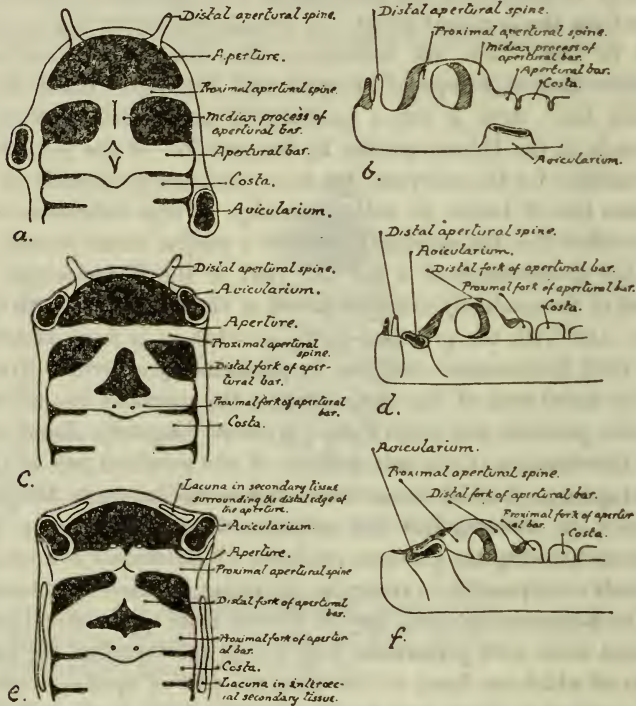 Distal apertural spine.
Aperture.
Proximal apertural spine.
Median process of
apertural bar.
Apertural bar.
Costa.
Avicularium.
a.
Distal apertural spine.
Proximal apertural spine.
Median process of
apertural bar.
Apertural bar.
Costa.
Avicularium.
b.
Distal apertural spine.
Avicularium.
Aperture.
Proximal apertural
spine.
Distal fork of aper-
tural bar.
Proximal fork of apertural
bar.
Costa.
c.
Distal apertural spine.
Avicularium.
Distal fork of apertural bar.
Proximal fork of apertural bar.
Costa.
d.
Lacuna in secondary tissue
surrounding the distal edge of
the aperture.
Avicularium.
Aperture.
Proximal apertural spine
Distal fork of apertural
bar.
Proximal fork of apertur
al bar.
Costa.
Lacuna in interoec-
ial secondary tissue.
e.
Avicularium.
Proximal apertural spine.
Distal fork of apertural bar.
Proximal fork of apertur
al bar.
Costa.
f.